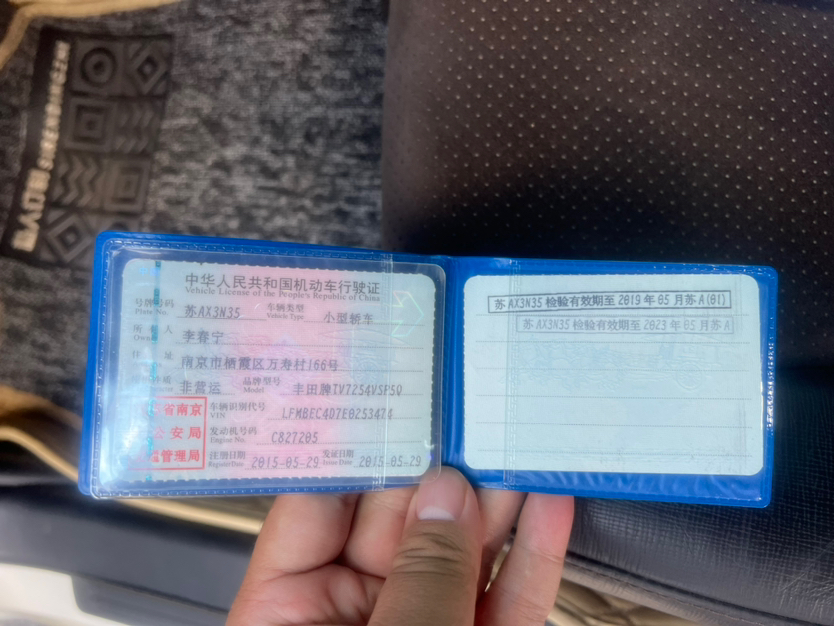 中华人民共和国机动车行驶证
Vehicle License of the People's Republic of China
号牌号码 苏AX3N35 车辆类型 小型轿车
Plate No. Vehicle Type
所有人 李春宁
Owner
住址 南京市栖霞区万寿村166号
非营运 品牌型号 丰田牌TV7254VSP5Q
Model
车辆识别代号 LFMBEC4D7E0253474
VIN
发动机号码 C827205
Engine No.
注册日期 2015-05-29 发证日期 2015-05-29
Register Date Issue Date
省南京
公安局
管理局
苏AX3N35 检验有效期至 2019 年 05 月苏A(01)
苏AX3N35 检验有效期至 2023 年 05 月苏A